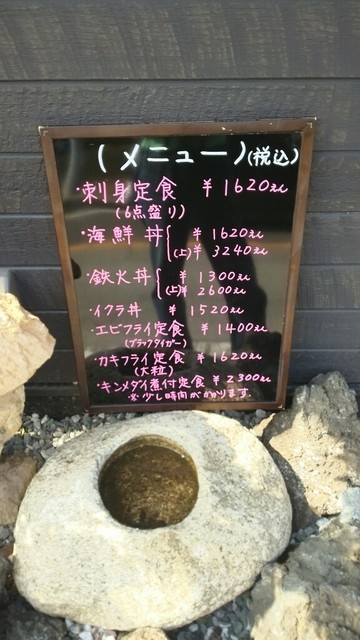 (メニュー)(税込)
・刺身定食 ¥1620えん
(6点盛り)
・海鮮丼 ¥1620えん
(上)¥3240えん
・鉄火丼 ¥1300えん
(上)¥2600えん
・イクラ丼 ¥1520えん
・エビフライ定食 ¥1400えん
(ブラックタイガー)
・カキフライ定食 ¥1620えん
(大粒)
・キンメダイ煮付定食 ¥2300えん
※少し時間がかかります。